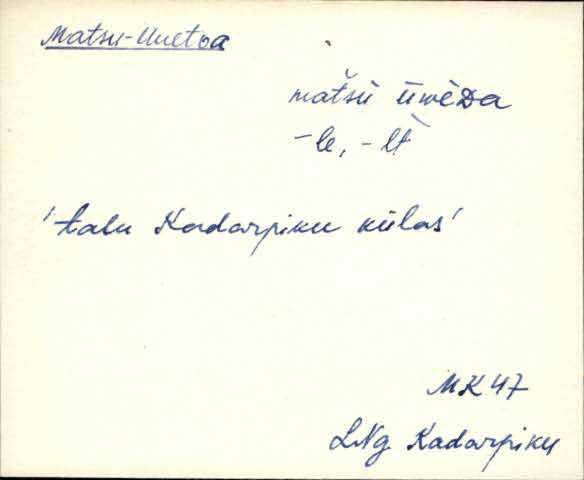 Matsu-Uuetoa
matšu ūwèDa
-le, -lt
'talu Kadarpiku külas'
MK 47
LNg Kadarpiku